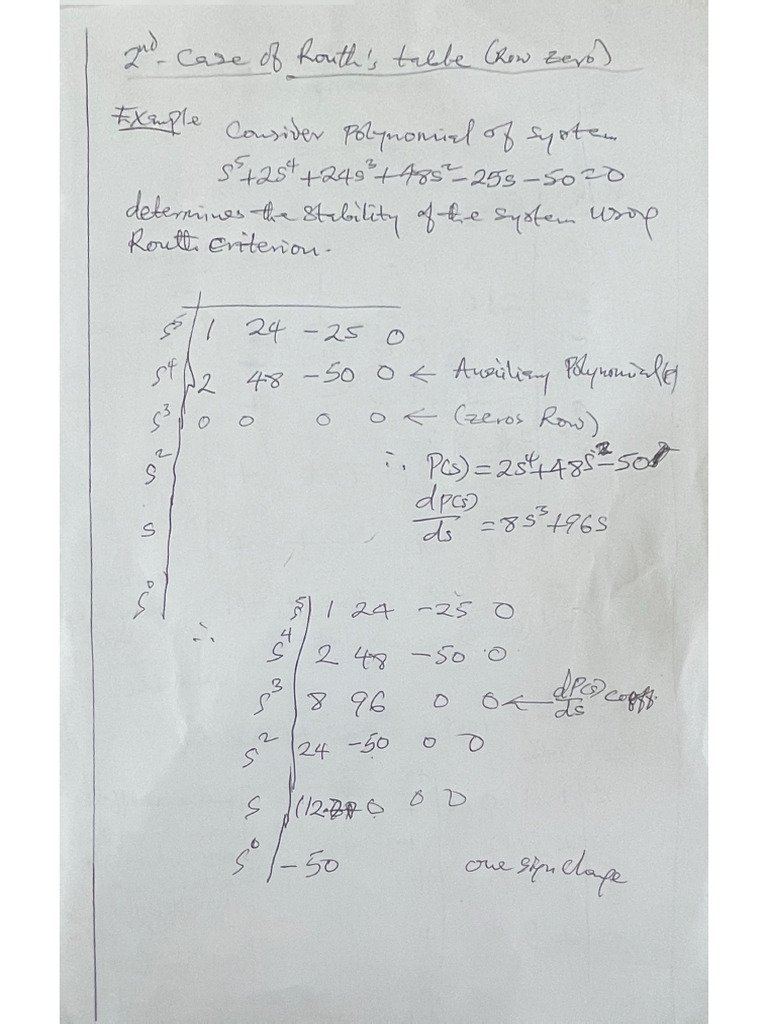 2nd - Case of Routh's table (Row zero)
Example Consider Polynomial of system
s⁵+2s⁴+24s³+48s²-25s-50=0
determines the stability of the system using
Routh Criterion.
s⁵ 1 24 -25 0
s⁴ 2 48 -50 0 ← Auxiliary Polynomial
s³ 0 0 0 0 ← (zeros Row)
s²
∴ P(s) = 2s⁴+48s²-50
s
dP(s)/ds = 8s³+96s
s⁰
∴ s⁵ 1 24 -25 0
s⁴ 2 48 -50 0
s³ 8 96 0 0 ← dP(s)/ds coeff.
s² 24 -50 0 0
s 112. 0 0 0
s⁰ -50 one sign change